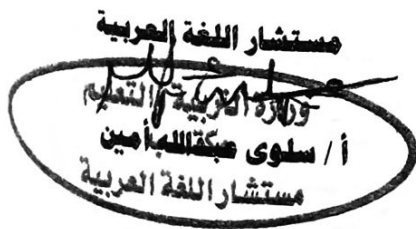 مستشار اللغة العربية
وزارة التربية والتعليم
أ / سلوى عبدالله أمين
مستشار اللغة العربية